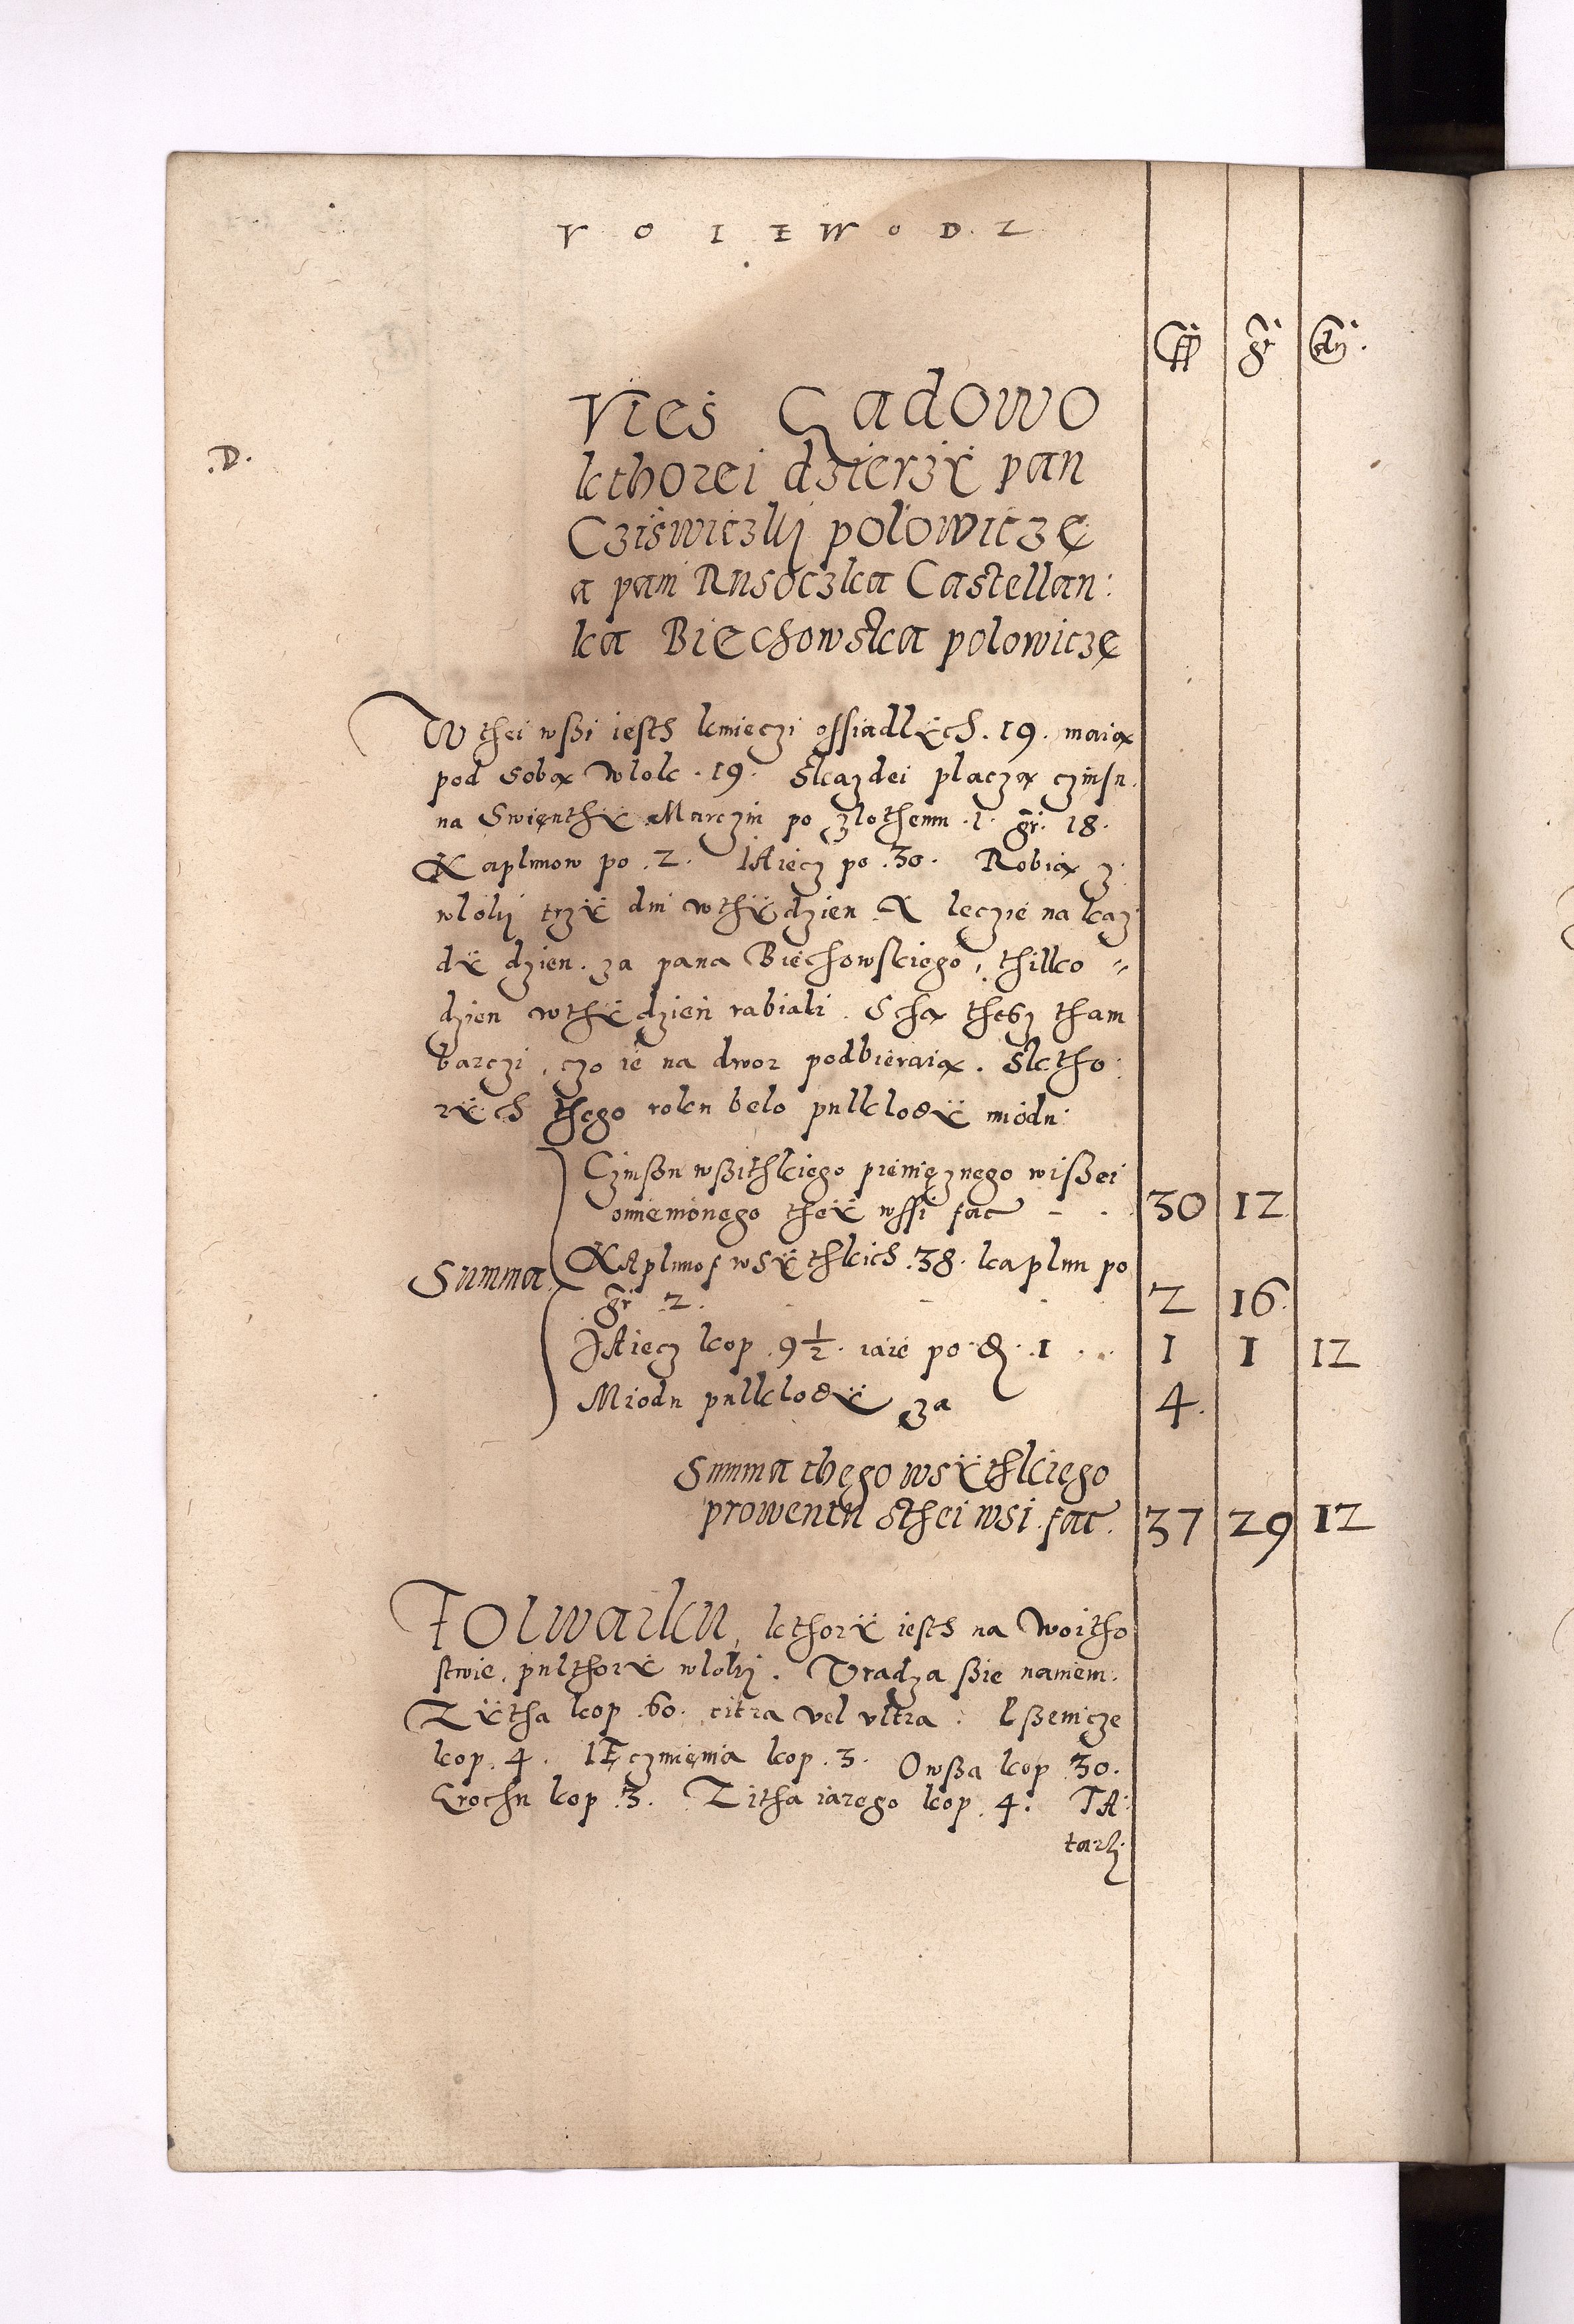 VOIEWODZ
ff gr dn.
Vies Gadowo
.D.
kthorei dzierzÿ pan
Cziswiczkÿ polowiczę
a pani Rusoczka Castellan:
ka Biechowska polowiczę
W thei wßi iesth kmieczi ossiadlÿch .19. maią
pod sobą wlok .19. Skazdei placzą czinsu.
na Swięnthÿ Marczin po zlothemu .1. gr. 18.
Kaplunow po .2. IAiecz po .30. Robią z
wloky trzÿ dni wthÿdzien A leczie na kaz
dÿ dzien. za pana Biechowskiego, thilko
dzien wthÿdzień rabiali. Sthą thesz tham
barczi, czo ie na dwor podbieraią. Sktho
rÿch thego roku belo pulklodÿ miodu:
Czinßu wßithkiego pienięznego wißei
omienionego theÿ wssi fac 30 12
Summa
KAplunof wsÿthkich .38. kaplun po
gr 2. 2 16.
IAiecz kop .9 1/2. iaie po d. 1 1 1 12
Miodu pulklodÿ za 4.
Summa thego wsÿthkiego
prowentu sthei wsi fac. 37 29 12
FOlwarku, kthorÿ iesth na woitho
stwie, pulthorÿ wloky. Vradza ßie naniem.
Zÿtha kop .60. citra vel vltra. Pßenicze
kop .4. IEczmienia kop .3. Owßa kop 30.
Grochu kop .3. Zitha iarego kop .4. TA:
tarky